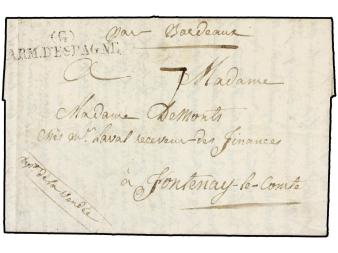 (G)
ARM. D'ESPAGNE
Par Bordeaux
7
A Madame
Madame Demonts
chés mr. Laval receveur des finances
à Fontenay-le-Comte
Dept de la Vendée